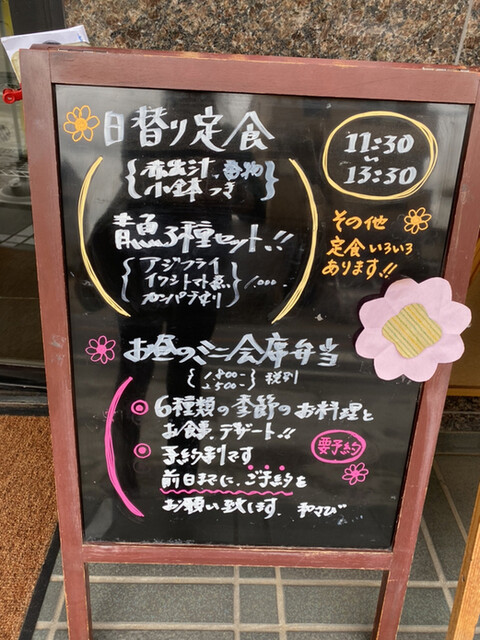 日替り定食
赤出汁、香物
小鉢つき
11:30
〜
13:30
青魚3種セット!!
アジフライ
イワシトマト煮
カンパチ造り
1,000-
その他
定食いろいろ
あります!!
お昼のミニ会席弁当
1,800-
2,500-
税別
6種類の季節のお料理と
お食事、デザート!!
要予約
予約制です
前日までに、ご予約を
お願い致します。
わさび